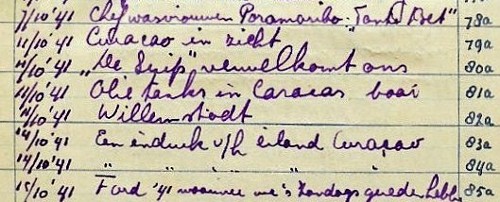 7/10 '41 Chef wasvrouwen Paramaribo: "Tante Bet" 78a
11/10 '41 Curaçao in zicht 79a
11/10 '41 "De Sijp" verwelkomt ons 80a
11/10 '41 Olie tanks in Caracas baai 81a
11/10 '41 Willemstadt 82a
14/10 '41 Een indruk v/h eiland Curaçao 83a
14/10 '41 " " " " 84a
15/10 '41 Ford '41 waarmee we 's Zondags gereden hebb 85a